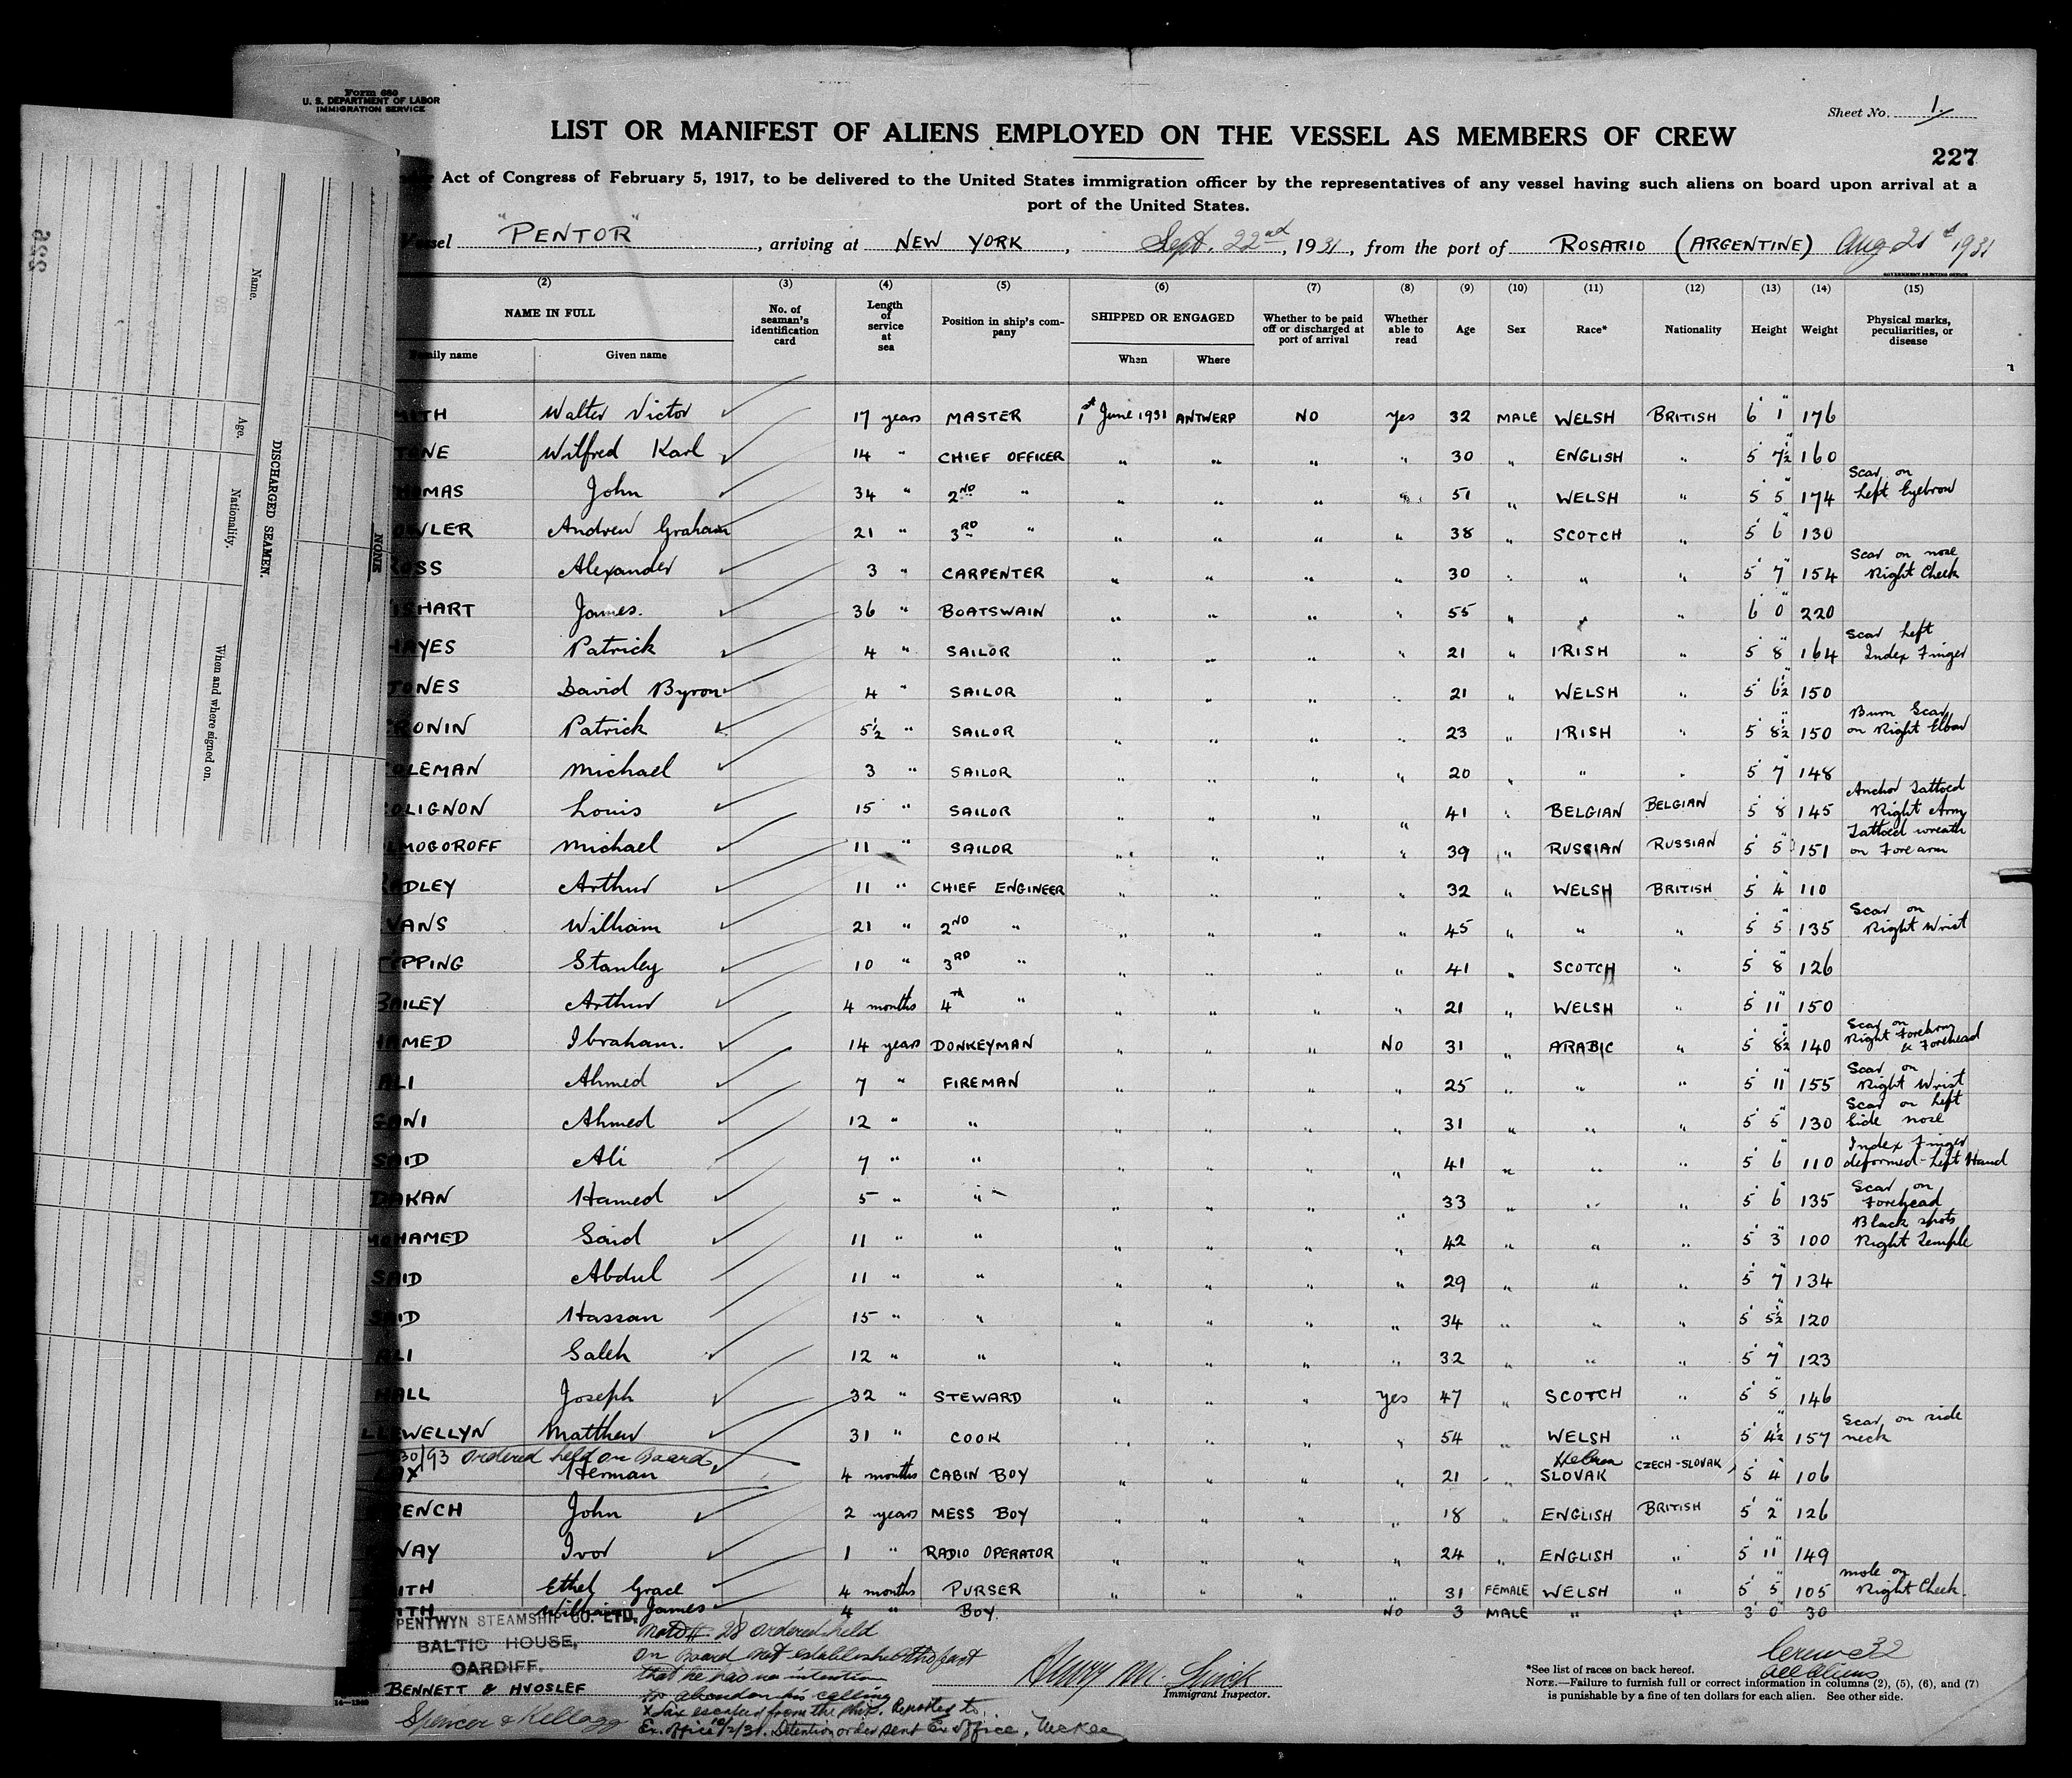 Form 680
U. S. DEPARTMENT OF LABOR
IMMIGRATION SERVICE
Sheet No. 1
LIST OR MANIFEST OF ALIENS EMPLOYED ON THE VESSEL AS MEMBERS OF CREW
227
Act of Congress of February 5, 1917, to be delivered to the United States immigration officer by the representatives of any vessel having such aliens on board upon arrival at a
port of the United States.
Vessel "PENTOR", arriving at NEW YORK, Sept. 22nd, 1931, from the port of ROSARIO (ARGENTINE) Aug 21st 1931
GOVERNMENT PRINTING OFFICE
(2) (3) (4) (5) (6) (7) (8) (9) (10) (11) (12) (13) (14) (15)
NAME IN FULL No. of seaman's identification card Length of service at sea Position in ship's company SHIPPED OR ENGAGED Whether to be paid off or discharged at port of arrival Whether able to read Age Sex Race* Nationality Height Weight Physical marks, peculiarities, or disease
Family name Given name When Where
MITH Walter Victor 17 years MASTER 1st June 1931 ANTWERP NO Yes 32 MALE WELSH BRITISH 6' 1" 176
TONE Wilfred Karl 14 " CHIEF OFFICER " " " " 30 " ENGLISH " 5' 7½" 160
OMAS John 34 " 2ND " " " " " 51 " WELSH " 5' 5" 174 Scar on Left Eyebrow
OWLER Andrew Graham 21 " 3RD " " " " " 38 " SCOTCH " 5' 6" 130
ROSS Alexander 3 " CARPENTER " " " " 30 " " " 5' 7" 154 Scar on nose Right Cheek
ISHART James. 36 " BOATSWAIN " " " " 55 " " " 6' 0" 220
HAYES Patrick 4 " SAILOR " " " " 21 " IRISH " 5' 8" 164 Scar Left Index Finger
JONES David Byron 4 " SAILOR " " " " 21 " WELSH " 5' 6½" 150
RONIN Patrick 5½ " SAILOR " " " " 23 " IRISH " 5' 8½" 150 Burn Scar on Right Elbow
OLEMAN Michael 3 " SAILOR " " " " 20 " " " 5' 7" 148
OLIGNON Louis 15 " SAILOR " " " " 41 " BELGIAN BELGIAN 5' 8" 145 Anchor Tattoed Right Arm
LMOGOROFF Michael 11 " SAILOR " " " " 39 " RUSSIAN RUSSIAN 5' 5" 151 Tattoed wreath on Forearm
ADLEY Arthur 11 " CHIEF ENGINEER " " " " 32 " WELSH BRITISH 5' 4" 110
VANS William 21 " 2ND " " " " " 45 " " " 5' 5" 135 Scar on Right Wrist
EPPING Stanley 10 " 3RD " " " " " 41 " SCOTCH " 5' 8" 126
BAILEY Arthur 4 months 4TH " " " " " 21 " WELSH " 5' 11" 150
HAMED Ibraham. 14 years DONKEYMAN " " " No 31 " ARABIC " 5' 8½" 140 Scar on Right Forearm & Forehead
ALI Ahmed 7 " FIREMAN " " " " 25 " " " 5' 11" 155 Scar on Right Wrist
GANI Ahmed 12 " " " " " " 31 " " " 5' 5" 130 Scar on Left Side nose
SAID Ali 7 " " " " " " 41 " " " 5' 6" 110 Index Finger deformed-Left Hand
DAKAN Hamed 5 " " " " " " 33 " " " 5' 6" 135 Scar on Forehead
MOHAMED Said 11 " " " " " " 42 " " " 5' 3" 100 Black spots Right Temple
SAID Abdul 11 " " " " " " 29 " " " 5' 7" 134
SAID Hassan 15 " " " " " " 34 " " " 5' 5½" 120
ALI Saleh 12 " " " " " " 32 " " " 5' 7" 123
HALL Joseph 32 " STEWARD " " " Yes 47 " SCOTCH " 5' 5" 146
LLEWELLYN Matthew 31 " COOK " " " " 54 " WELSH " 5' 4½" 157 Scar on side neck
30/93 ordered held on Board
AX Herman 4 months CABIN BOY " " " " 21 " Hebrew SLOVAK CZECH-SLOVAK 5' 4" 106
RENCH John 2 years MESS BOY " " " " 18 " ENGLISH BRITISH 5' 2" 126
WAY Ivor 1 " RADIO OPERATOR " " " " 24 " ENGLISH " 5' 11" 149
ITH Ethel Grace 4 months PURSER " " " " 31 FEMALE WELSH " 5' 5" 105 mole on Right Cheek.
ITH William James 4 " BOY. NO 3 MALE " " 3' 0" 30
PENTWYN STEAMSHIP CO. LTD.
BALTIC HOUSE,
CARDIFF.
BENNETT & HVOSLEF
Spencer & Kellogg
14—1240
Note # 28 ordered held
on Board not established the fact
that he has no intention
to abandon his calling
X Sax escaped from the ship. Reported to
Ex. office 10/2/31. Detention order sent Ex office, McKee
Immigrant Inspector.
Crew 32
all aliens
*See list of races on back hereof.
NOTE.—Failure to furnish full or correct information in columns (2), (5), (6), and (7)
is punishable by a fine of ten dollars for each alien. See other side.
DISCHARGED SEAMEN.
Name.
Age.
Nationality.
When and where signed on.
NONE